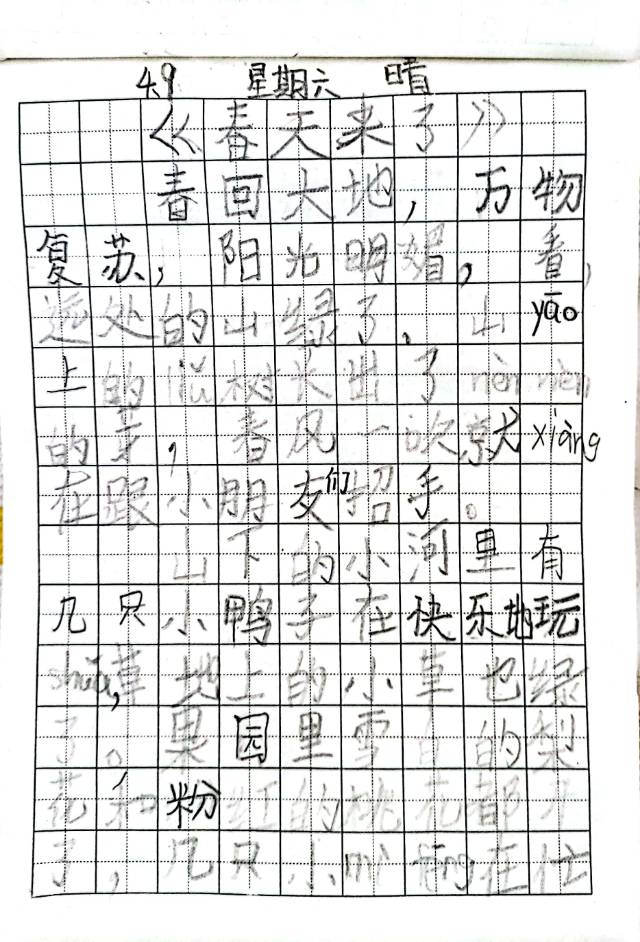 4.9 星期六 晴
《春天来了》
春回大地,万物
复苏,阳光明媚,看,
远处的山绿了,山yāo
上的liǔ树长出了nèn nèn
的牙,春风一吹就xiàng
在跟小朋友们招手。
山下的小河里有
几只小鸭子在快乐地玩
shuǎ,草地上的小草也绿
了。果园里雪白的梨
花和粉红的桃花都开
了,几只小mì fēng在忙